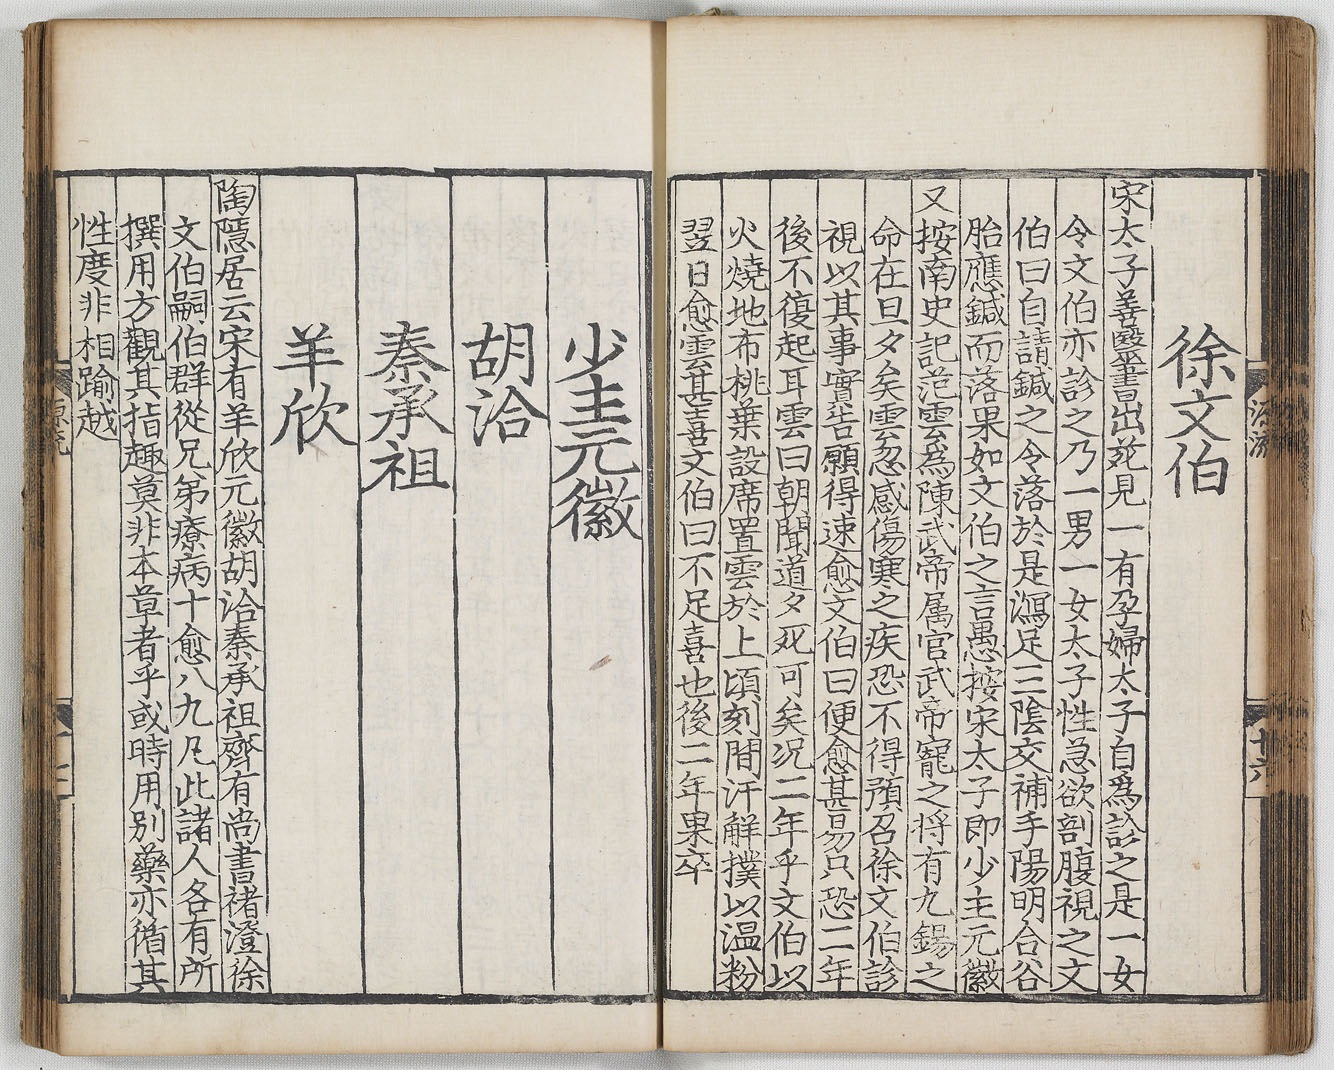 徐文伯
宋太子善醫書出苑見一有孕婦太子自爲診之是一女
令文伯亦診之乃一男一女太子性急欲剖腹視之文
伯曰自請鍼之令落於是瀉足三陰交補手陽明合谷
胎應鍼而落果如文伯之言愚按宋太子即少主元徽
又按南史記范雲爲陳武帝属官武帝寵之將有九錫之
命在旦夕矣雲忽感傷寒之疾恐不得預召徐文伯診
視以其事實告願得速愈文伯曰便愈甚易只恐二年
後不復起耳雲曰朝聞道夕死可矣况二年乎文伯以
火燒地布桃葉設席置雲於上頃刻間汗解撲以温粉
翌日愈雲甚喜文伯曰不足喜也後二年果卒
少主元徽
胡洽
秦承祖
羊欣
陶隱居云宋有羊欣元徽胡洽秦承祖齊有尚書褚澄徐
文伯嗣伯群從兄弟療病十愈八九凡此諸人各有所
撰用方觀其指趣莫非本草者乎或時用別藥亦循其
性度非相踰越
源流
十六